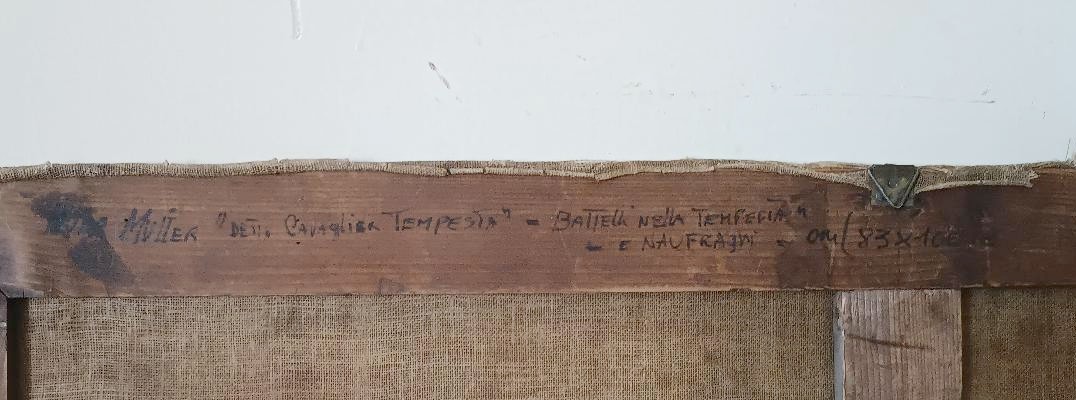 Müller "DETTO CAVAGLIER TEMPESTA" - BATTELLI NELLA TEMPESTA"
- E NAUFRAGHI - cm (83X10